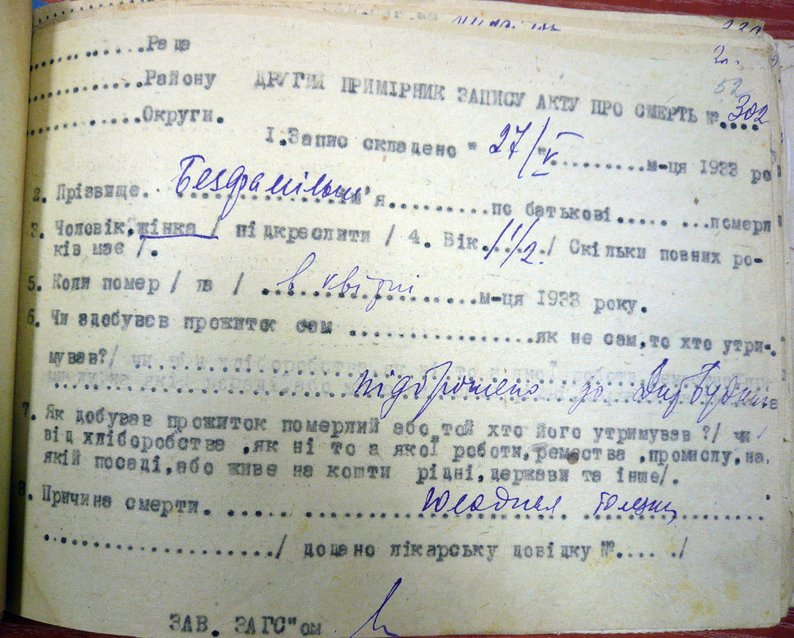 ........Раца
...........Району ДРУГИЙ ПРИМІРНИК ЗАПИСУ АКТУ ПРО СМЕРТЬ № 302
...........Округи.
І. Запис складено " 27/V "..........м-ця 1933 ро
2. Прізвище. Безфамільн ім'я........по батькові..... ...померл
3. Чоловік, жінка / підкреслити / 4. Вік 1 1/2 / Скільки повних ро-
ків має /.
5. Коли помер / ла / в квітні м-ця 1933 року.
6. Чи здобував прожиток сам ................як не сам, то хто утри-
мував?/
підброшено до
7. Як добував прожиток померлий або той хто його утримував ?/ чи
від хліборобства ,як ні то з якої роботи, ремества ,промислу,на
якій посаді,або живе на кошти рідні, держави та інше/.
8. Причина смерти.
................/ додано лікарську довідку №..... ./
ЗАВ. ЗАГС"ом